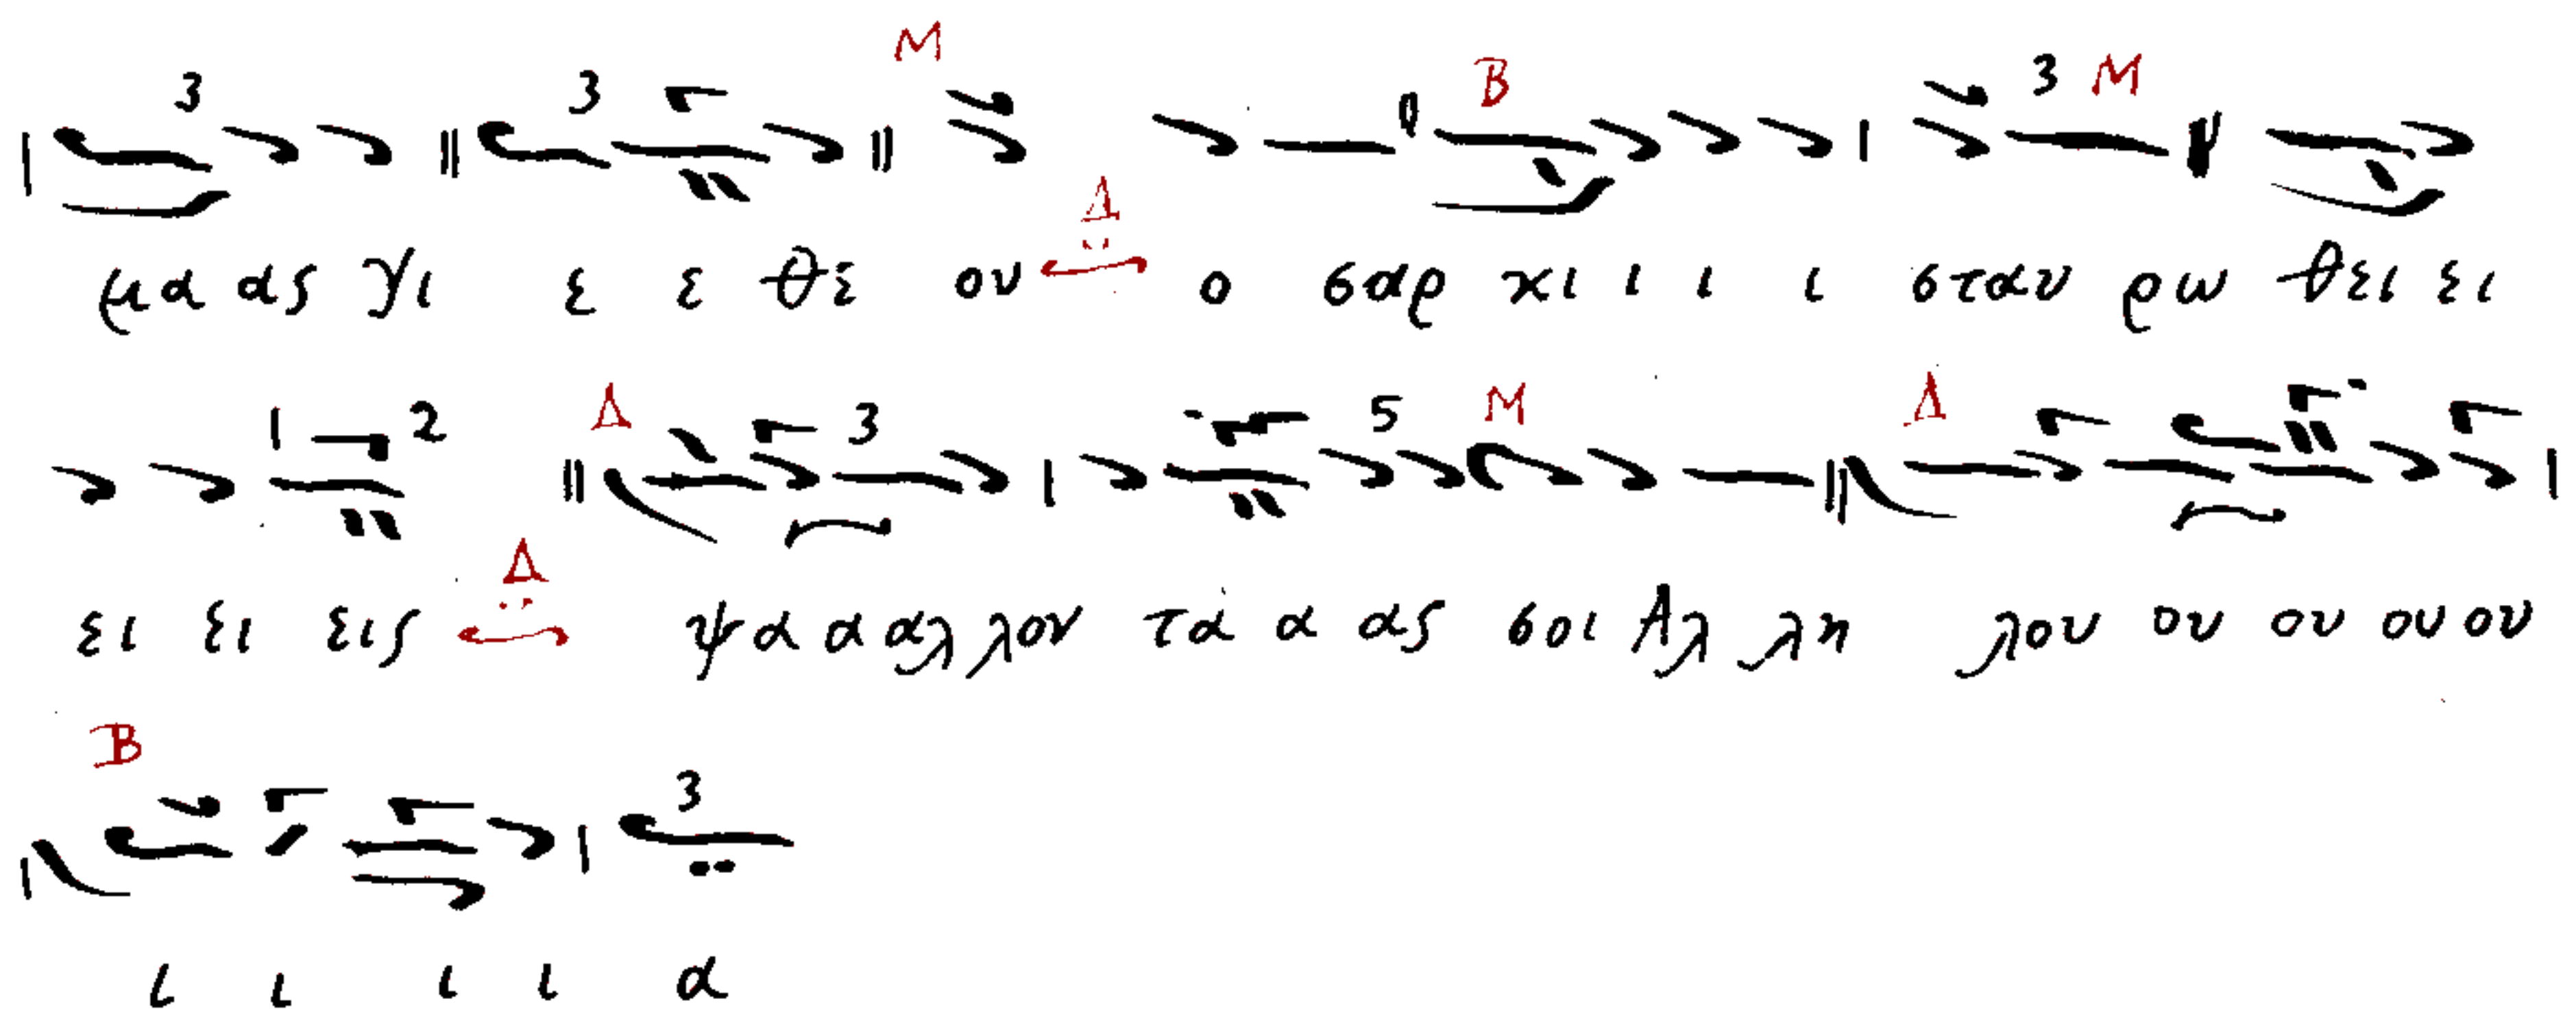 3 3 M B 3 M
μα ας γι ε ε θε ου Δ ο σαρ κι ι ι ι σταυ ρω θει ει
2 Δ 3 5 M Δ
ει ει εις Δ ψα α αλ λον τα α ας σοι Αλ λη λου ου ου ου ου
B 3
ι ι ι ι α